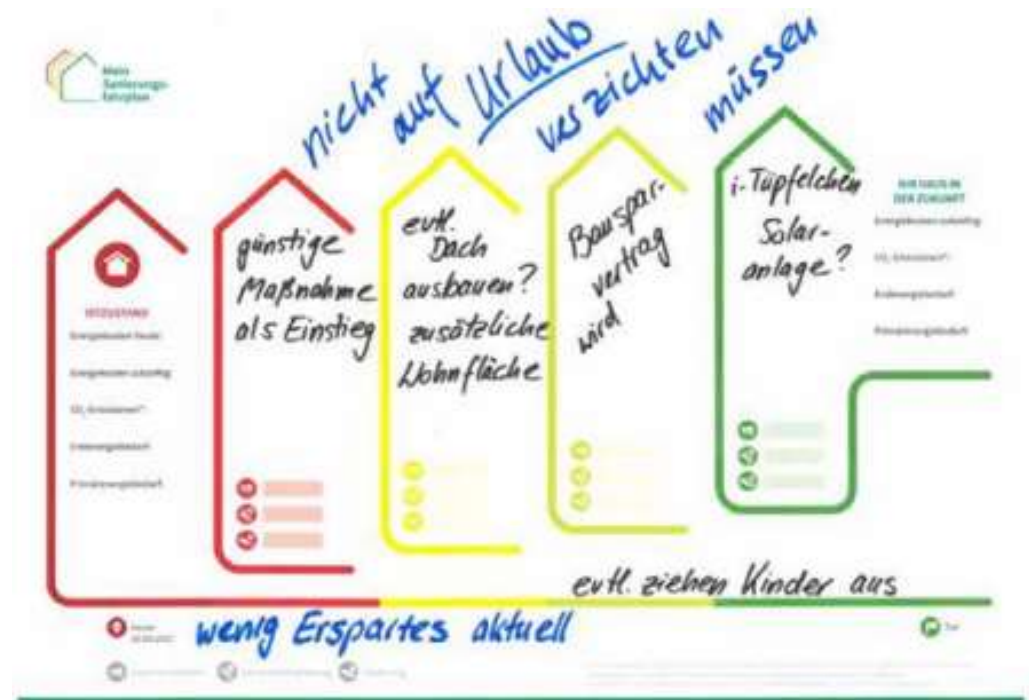 Mein
Sanierungs-
fahrplan
nicht auf Urlaub verzichten müssen
ISTZUSTAND
Energiekosten heute
Energiekosten zukünftig
CO₂-Emissionen
Endenergiebedarf
Primärenergiebedarf
günstige
Maßnahme
als Einstieg
evtl.
Dach
ausbauen?
zusätzliche
Wohnfläche
Bauspar-
vertrag
wird
i-Tüpfelchen
Solar-
anlage?
IHR HAUS IN
DER ZUKUNFT
Energiekosten zukünftig
CO₂-Emissionen
Endenergiebedarf
Primärenergiebedarf
evtl. ziehen Kinder aus
Heute
wenig Erspartes aktuell
Ziel